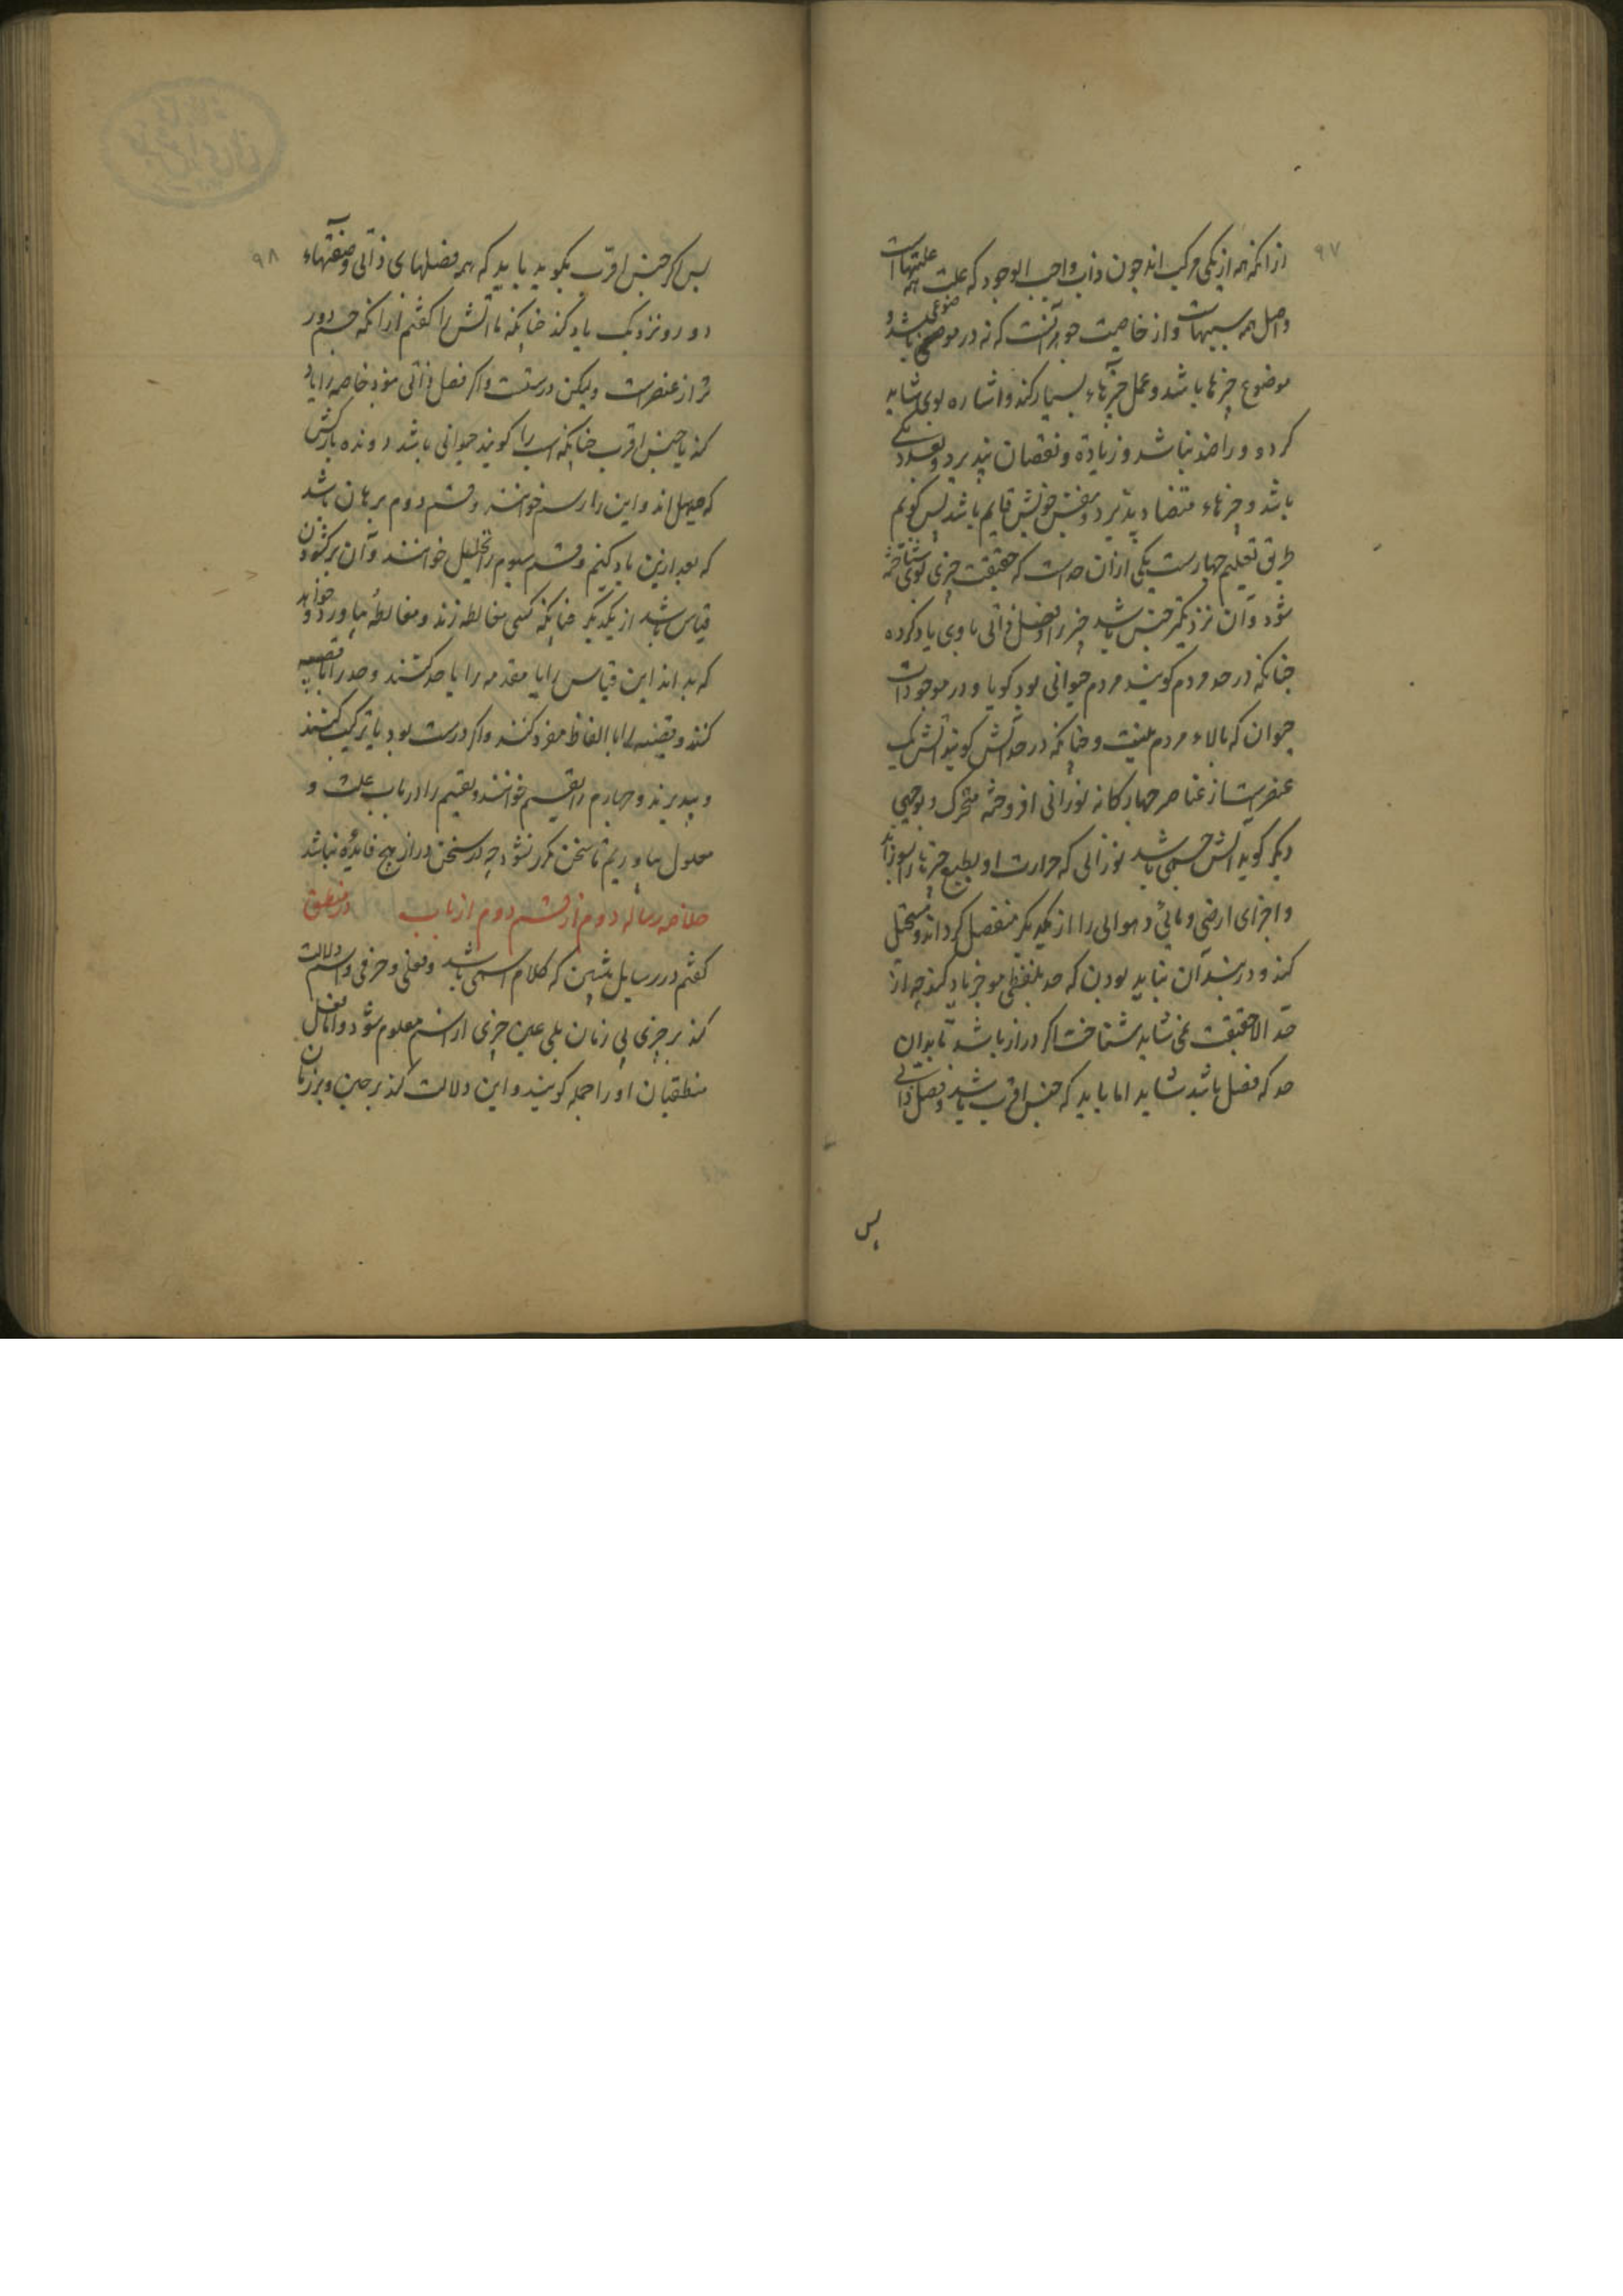 ۹۷
ازانکه همه از یکی مرکب اند چون ذات واجب الوجود که علت همه علتهاست
واصل همه سببهاست واز خاصیت جوهر آنست که نه در موضوعی باشد و
موضوع چیزها باشد وعمل چیزهاء بسیار کند واشاره بوی شاید
کرد و وراضد نباشد و زیادة ونقصان نپذیرد وبعدد یکی
باشد وچیزهاء متضاد پذیرد وبنفس خویش قایم باشد پس کویم
طریق تعلیم چهارست یکی ازان حدست که حقیقت چیزی بوی شناخته
شود وآن نزدیکتر جنس باشد چیز را وفصل ذاتی باوی یاد کرده
چنانکه در حد مردم کویند مردم حیوانی بود کویا ودر موجودات
حیوان که بالاء مردم نیست وچنانکه در حد آتش کویند آتش یک
عنصریست از عناصر چهارکانه نورانی افروخته متحرک وبوجهی
دیگر کویند آتش جسمی باشد نورانی که حرارت او بطبع چیزها را بسوزاند
واجزای ارضی ومائی وهوائی را از یکدیکر منفصل کرداند ومستحیل
کند ودر بند آن نباید بودن که حد بلفظی موجز یاد کند چه از
حد الا حقیقت نمی شاید شناخت اکر دراز باشد تا بدان
حد که فصل باشد شاید اما باید که جنس اقرب باشد وفصل ذاتی
پس
۹۸
پس اکر جنس اقرب بکوید باید که همه فصلهای ذاتی وصفتهاء
دور ونزدیک یاد کند چنانکه ما آتش را کفتیم ازانکه جسم دور
تر از عنصرست ولیکن درستست واکر فصل ذاتی نبود خاصه را یاد
کند با جنس اقرب چنانکه اسب را کویند حیوانی باشد دونده بارکش
که صهیل اند واین را رسم خوانند وقسم دوم برهان باشد
که بعد ازین یاد کنیم وقسم سیوم را تحلیل خوانند وآن برکشودن
قیاس باشد از یکدیکر چنانکه کسی مغالطه زند ومغالطهٔ بیاورد وخواهد
که بداند این قیاس را با مقدمه را با حد کشند وحد را با قضیه
کنند وقضیه را با الفاظ مفرد کنند واکر درست بود باز ترکیب کنند
وبپذیرند وچهارم را تقسیم خوانند وتقسیم را در باب علت و
معلول بیاوریم تا سخن مکرر نشود چه در سخن دراز هیچ فایدهٔ نباشد
خلاصه رساله دوم از قسم دوم از باب در منطق
کفتیم در رسایل پیشین که کلام اسمی باشد وفعلی وحرفی واسم دلالت
کند بر چیزی بی زمان بلی عین چیزی از اسم معلوم شود واما فعل
منطقیان او را جمله کویند واین دلالت کند بر چیزی وبر زمان